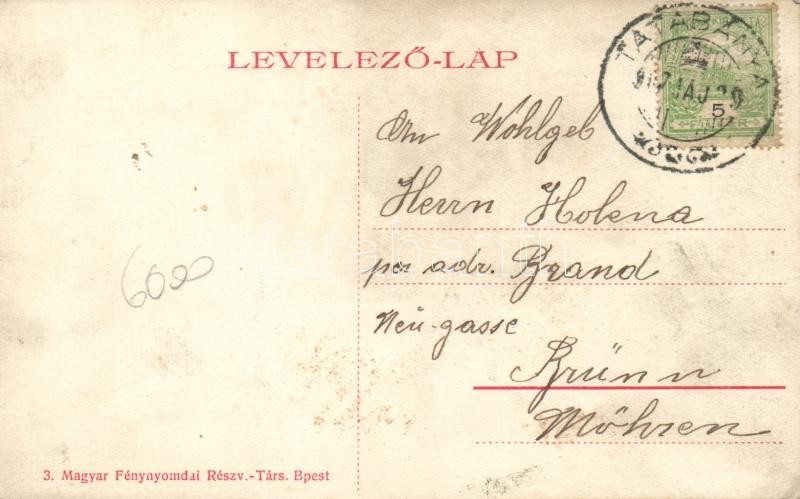 LEVELEZŐ-LAP
TATABÁNYA
5
An Wohlgeb
Herrn Holena
per adr. Brand
Neu-gasse
Brünn
Möhren
6000
3. Magyar Fénynyomdai Részv.-Társ. Bpest